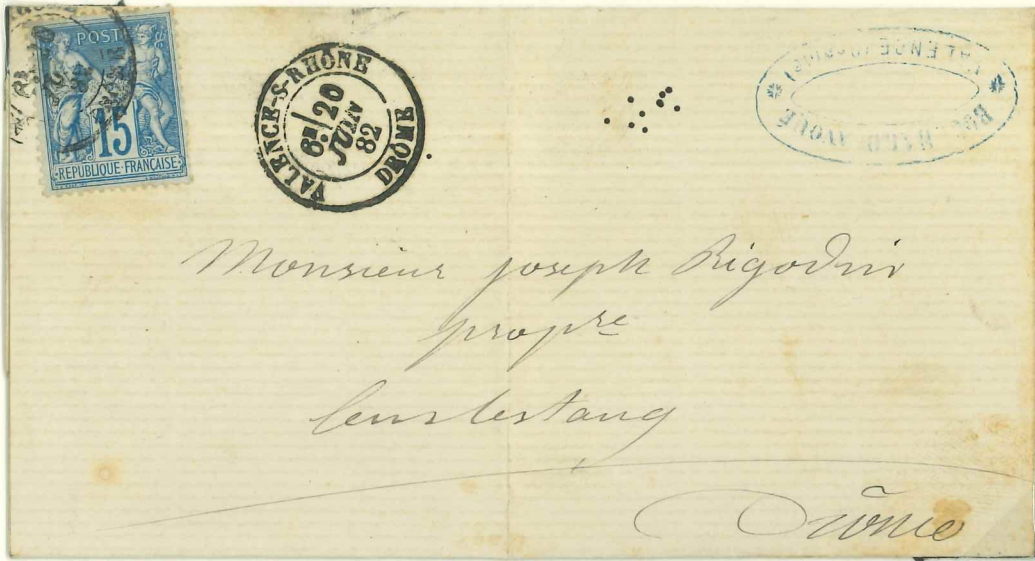 POSTE
15
RÉPUBLIQUE FRANÇAISE
VALENCE-S-RHÔNE
6E
20
JUIN
82
DRÔME
VALENCE (DROME)
AVOUÉ
Monsieur joseph Rigodin
propre
Lens Lestang
Drôme